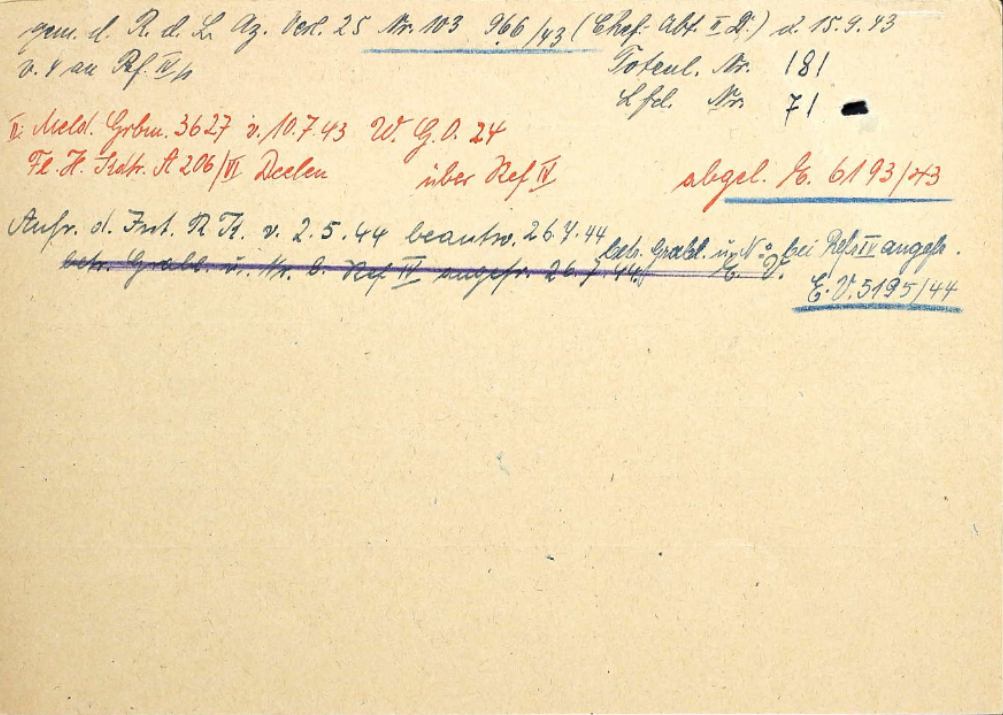 gem. d. R. d. L. Az. Verl. 25 Nr. 103 966/43 (Chef. Abt. II) v. 15.9.43
Totenl. Nr. 181
Lfd. Nr. 71
Meld. Grbm. 3627 v. 10.7.43 W. G. O. 24
Fl. H. Kdtr. A 206/VI Deelen über Ref IV abgel. 6193/43
Anfr. d. Int. R. K. v. 2.5.44 beantw. 26.7.44 betr. Grabl. u. N° bei Ref. IV angefr.
betr. Grabl. u. Nr. b. Ref IV angefr. 26.7.44 E. V.
E. V. 5195/44